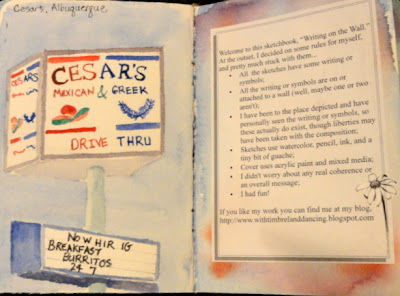 Cesars, Albuquerque
CESAR'S
MEXICAN & GREEK
DRIVE THRU
CES
AR'S
NOW HIR IG
BREAKFAST
BURRITOS
24 7
Welcome to this sketchbook, "Writing on the Wall."
At the outset, I decided on some rules for myself,
and pretty much stuck with them...
• All the sketches have some writing or
symbols;
• All the writing or symbols are on or
attached to a wall (well, maybe one or two
aren't);
• I have been to the place depicted and have
personally seen the writing or symbols, so
these actually do exist, though liberties may
have been taken with the composition;
• Sketches use watercolor, pencil, ink, and a
tiny bit of guache;
• Cover uses acrylic paint and mixed media;
• I didn't worry about any real coherence or
an overall message;
• I had fun!
If you like my work you can find me at my blog,
http://www.withtimbrelanddancing.blogspot.com